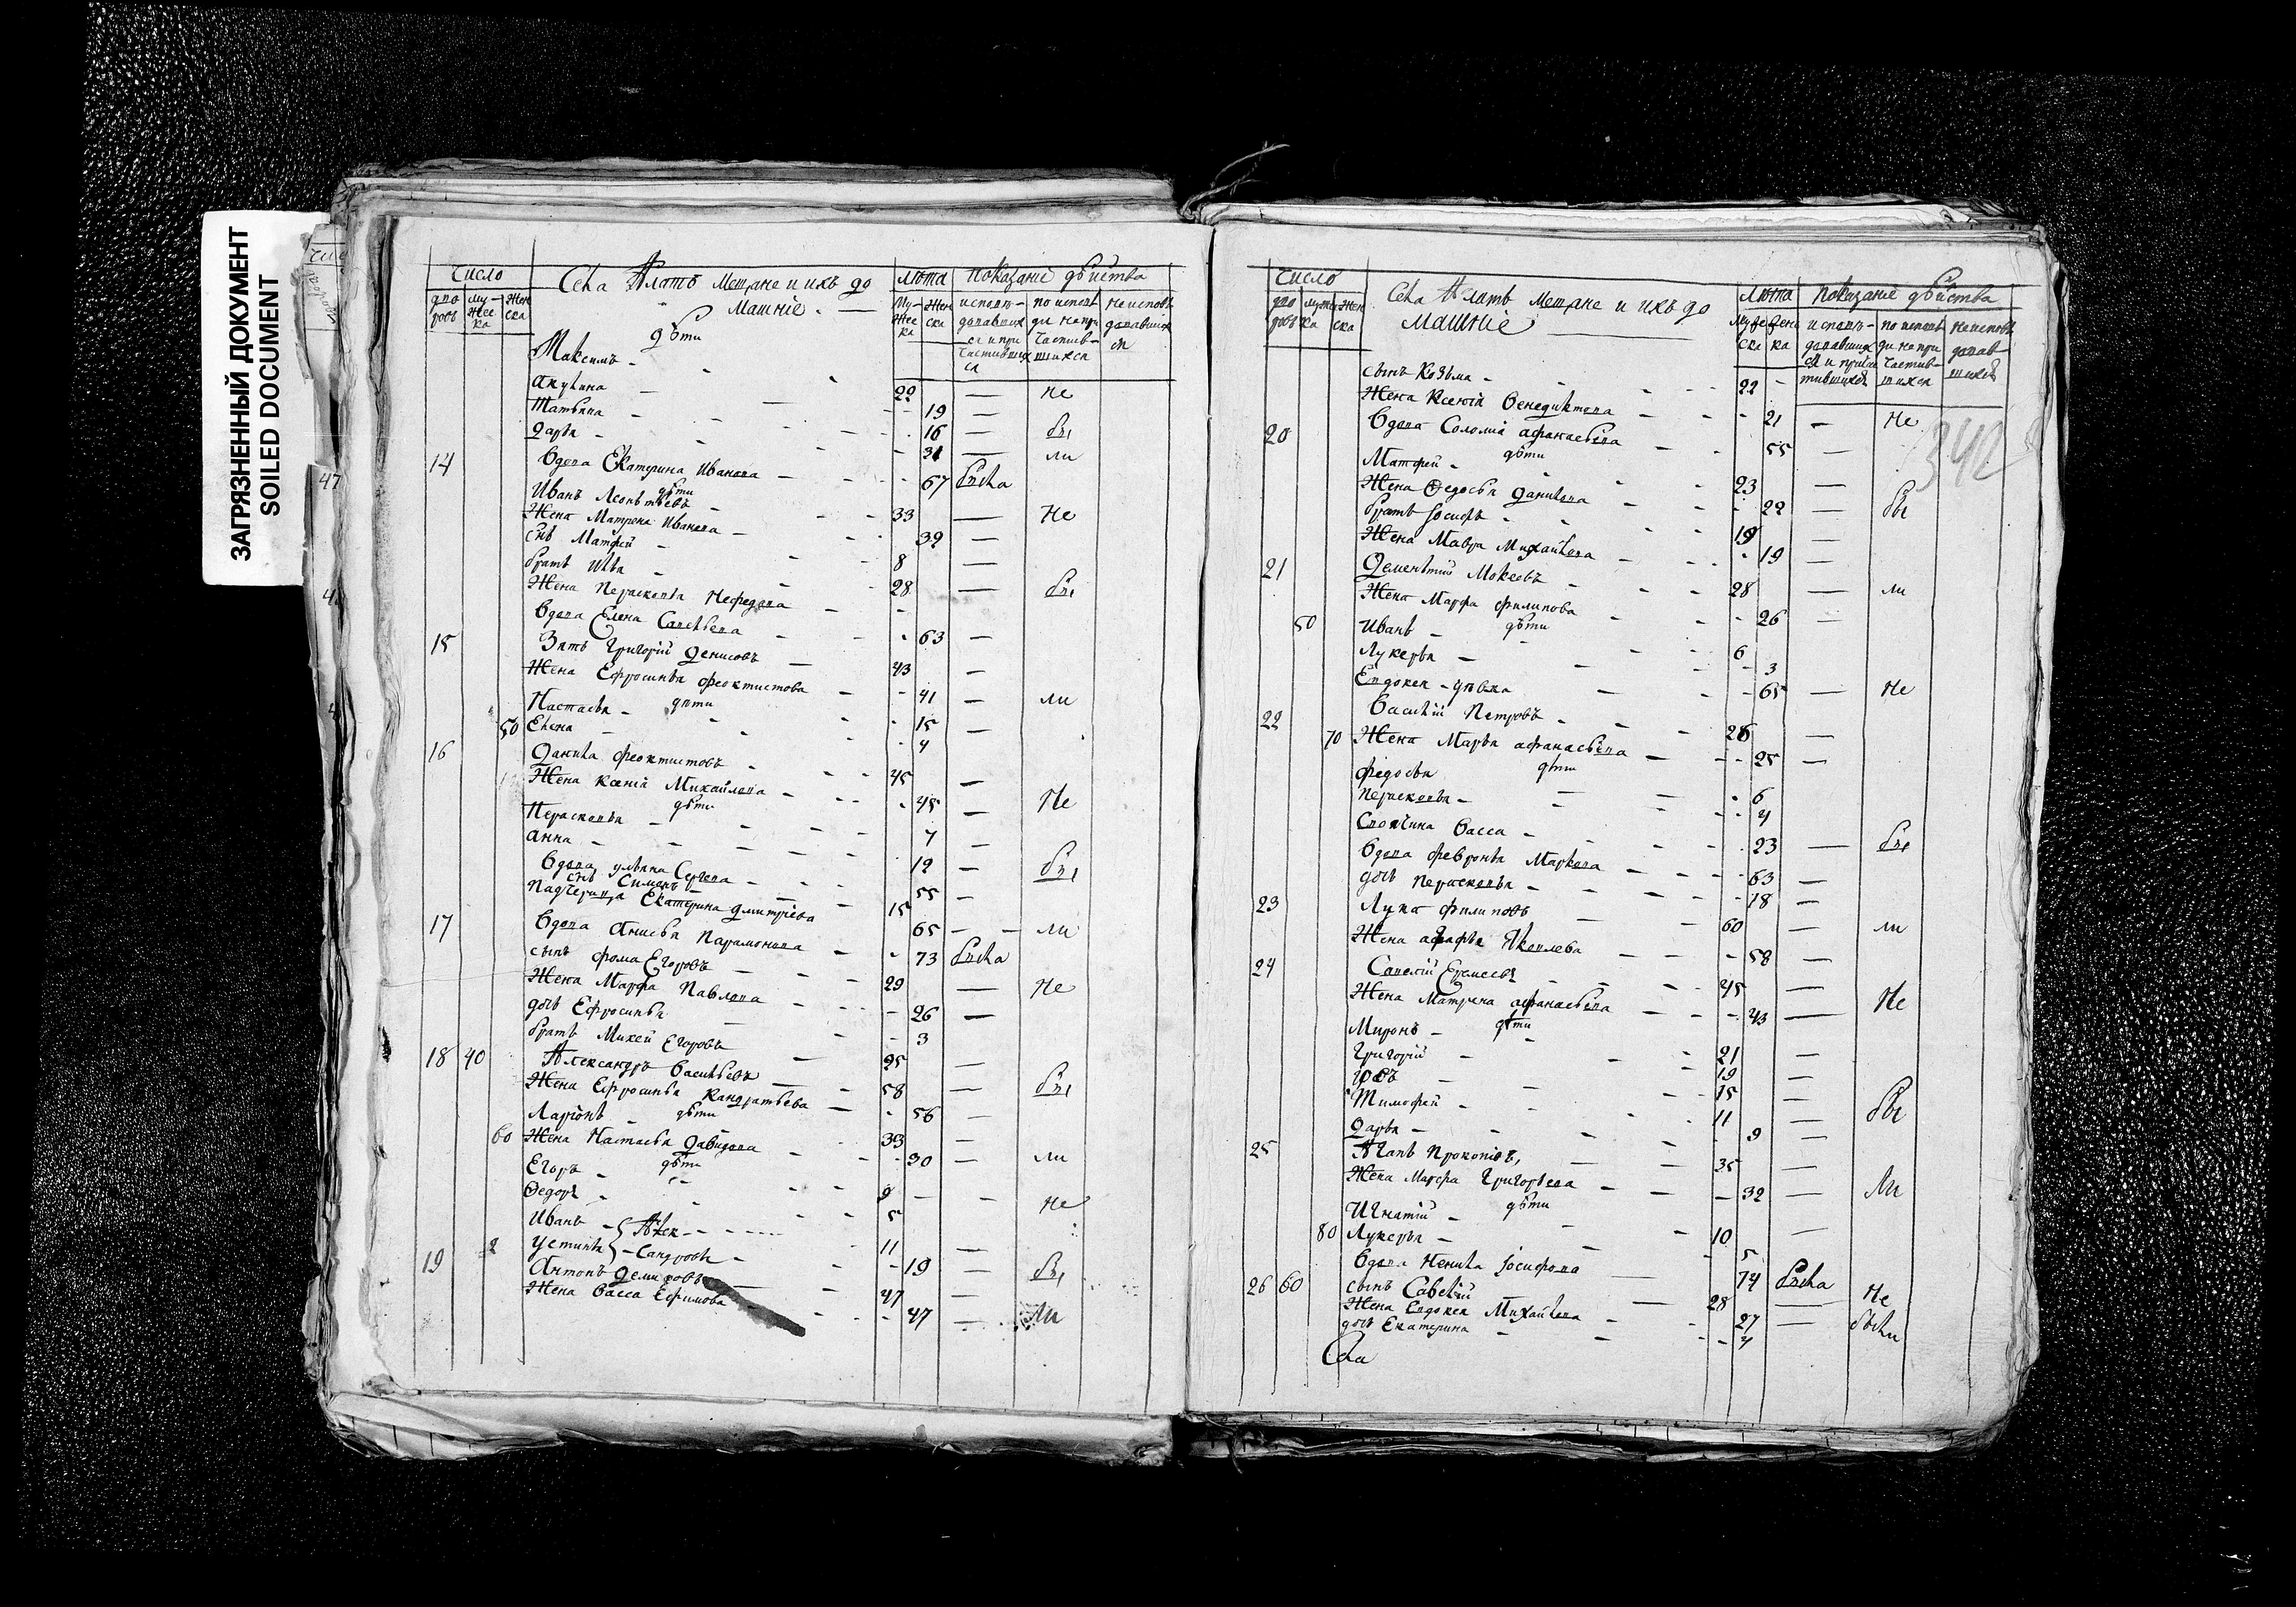 ЗАГРЯЗНЕННЫЙ ДОКУМЕНТ
SOILED DOCUMENT
47
число
дво ровъ
му-жес ка
жен ска
Села Мещане и ихъ до
машніе
лѣта
Показаніе дѣйства
дѣти
Максимъ 22 не
Акулина 19
Татьяна 16 бы
Дарья 31 ли
14 вдова Екатерина Иванова 67 была
дѣти
Иванъ Леонтьевъ 33 не
жена Матрена Иванова 32
снъ Матфей 8
братъ Илья 28 бы
жена Перасковья Нефедова
вдова Елена Савельева 63
15 Зять Григорій Денисовъ 43
жена Ефросинья Феоктистова 41 ли
дѣти
Настасья 15
50 Елена 4
16 Данила Феоктистовъ 45
жена Ксенія Михайлова 45 не
дѣти
Перасковья 7
Анна 12 бы
вдова Ульяна Сергева 55
снъ Симонъ 15
Падчерица Екатерина Дмитріева 65 ли
17 вдова Анисья Парамонова 73 была
сынъ Фома Егоровъ 29 не
жена Марфа Павлова 26
дочь Ефросинья 3
братъ Михей Егоровъ 25
18 40 Александръ Васильевъ 58 бы
жена Ефросинья Кандратьева 56
дѣти
Ларіонъ 33
60 жена Настасья Давидова 30 ли
дѣти
Егоръ 9 не
Федоръ 5
Иванъ Алек- 11
Устинья -сандровы 19 бы
19 Антонъ 47
жена Васса Ефимова 47 ли
число
Села Мещане и ихъ до
машніе
лѣта
Показаніе дѣйства
342
сынъ Козьма 22
жена Ксенія Венедиктова 21 не
20 вдова Соломія Афанасьева 55
дѣти
Матфей 23
жена Федосья Данилова 22 бы
братъ Іосифъ 19
жена Мавра Михайлова 19
21 Дементій Мокеевъ 28 ли
жена Марфа Филипова 26
дѣти
50 Иванъ 6
Лукерья 3
Евдокея дѣвка 65 не
22 Василій Петровъ 26
70 жена Марья Афанасьева 25
дѣти
Федосья 6
Пераскевья 4
Своячина Васса 23 бы
вдова Февронья Маркова 63
дочь Пераскевья 18
23 Лука Филиповъ 60 ли
жена Агафья Яковлева 58
24 Савелій Еремеевъ 45
жена Матрена Афанасьева 43 не
дѣти
Миронъ 21
Григорій 19
Іовъ 15
Тимофей 11 бы
Дарья 9
25 Агапъ Прокопіевъ, 35
жена Марфа Григорьева 32 ли
дѣти
Игнатій 10
80 Лукерья 5
вдова Ненила Іосифова 74 была
26 60 сынъ Савелій 28 не
жена Евдокея Михайлова 27 были
дочь Екатерина 4